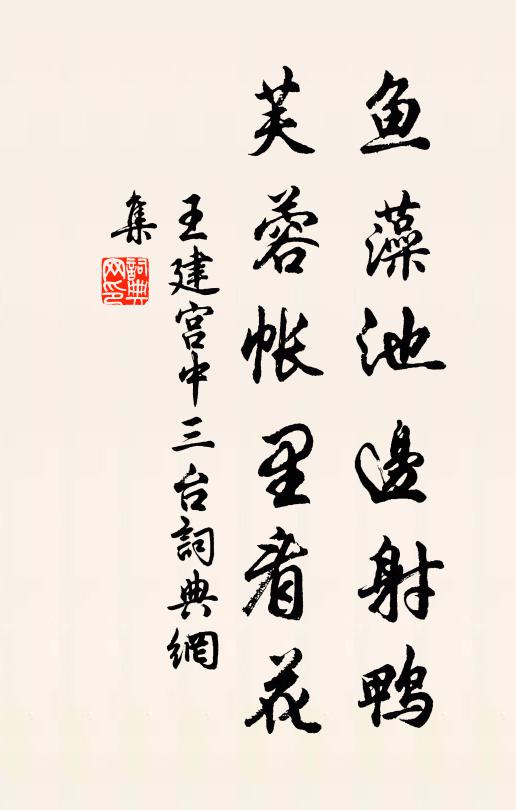 鱼藻池邊射鴨
芙蓉帐里看花
王建宫中三台詞典網
集
詞典
网印